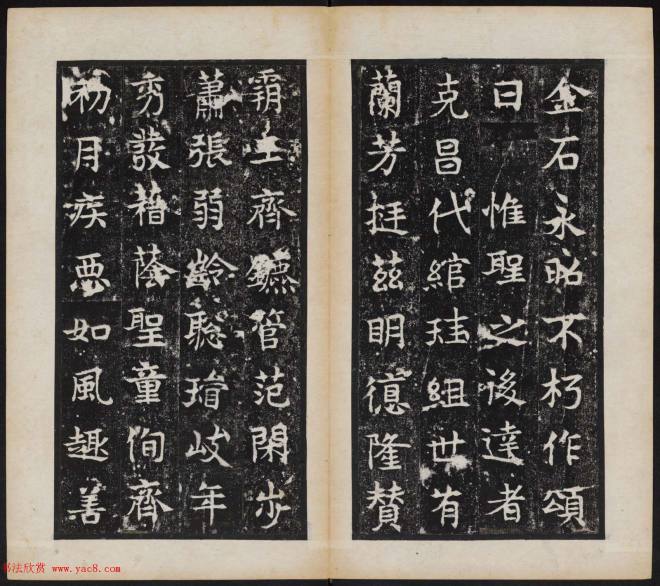 金石永昭不朽作頌
曰 惟聖之後達者
克昌代綰珪組世有
蘭芳挺茲明德隆贊
霸王齊鑣管范閑步
蕭張弱齡聰睿岐年
秀發藉蔭聖童徇齊
初月疾惡如風趣善
书法欣赏 www.yac8.com